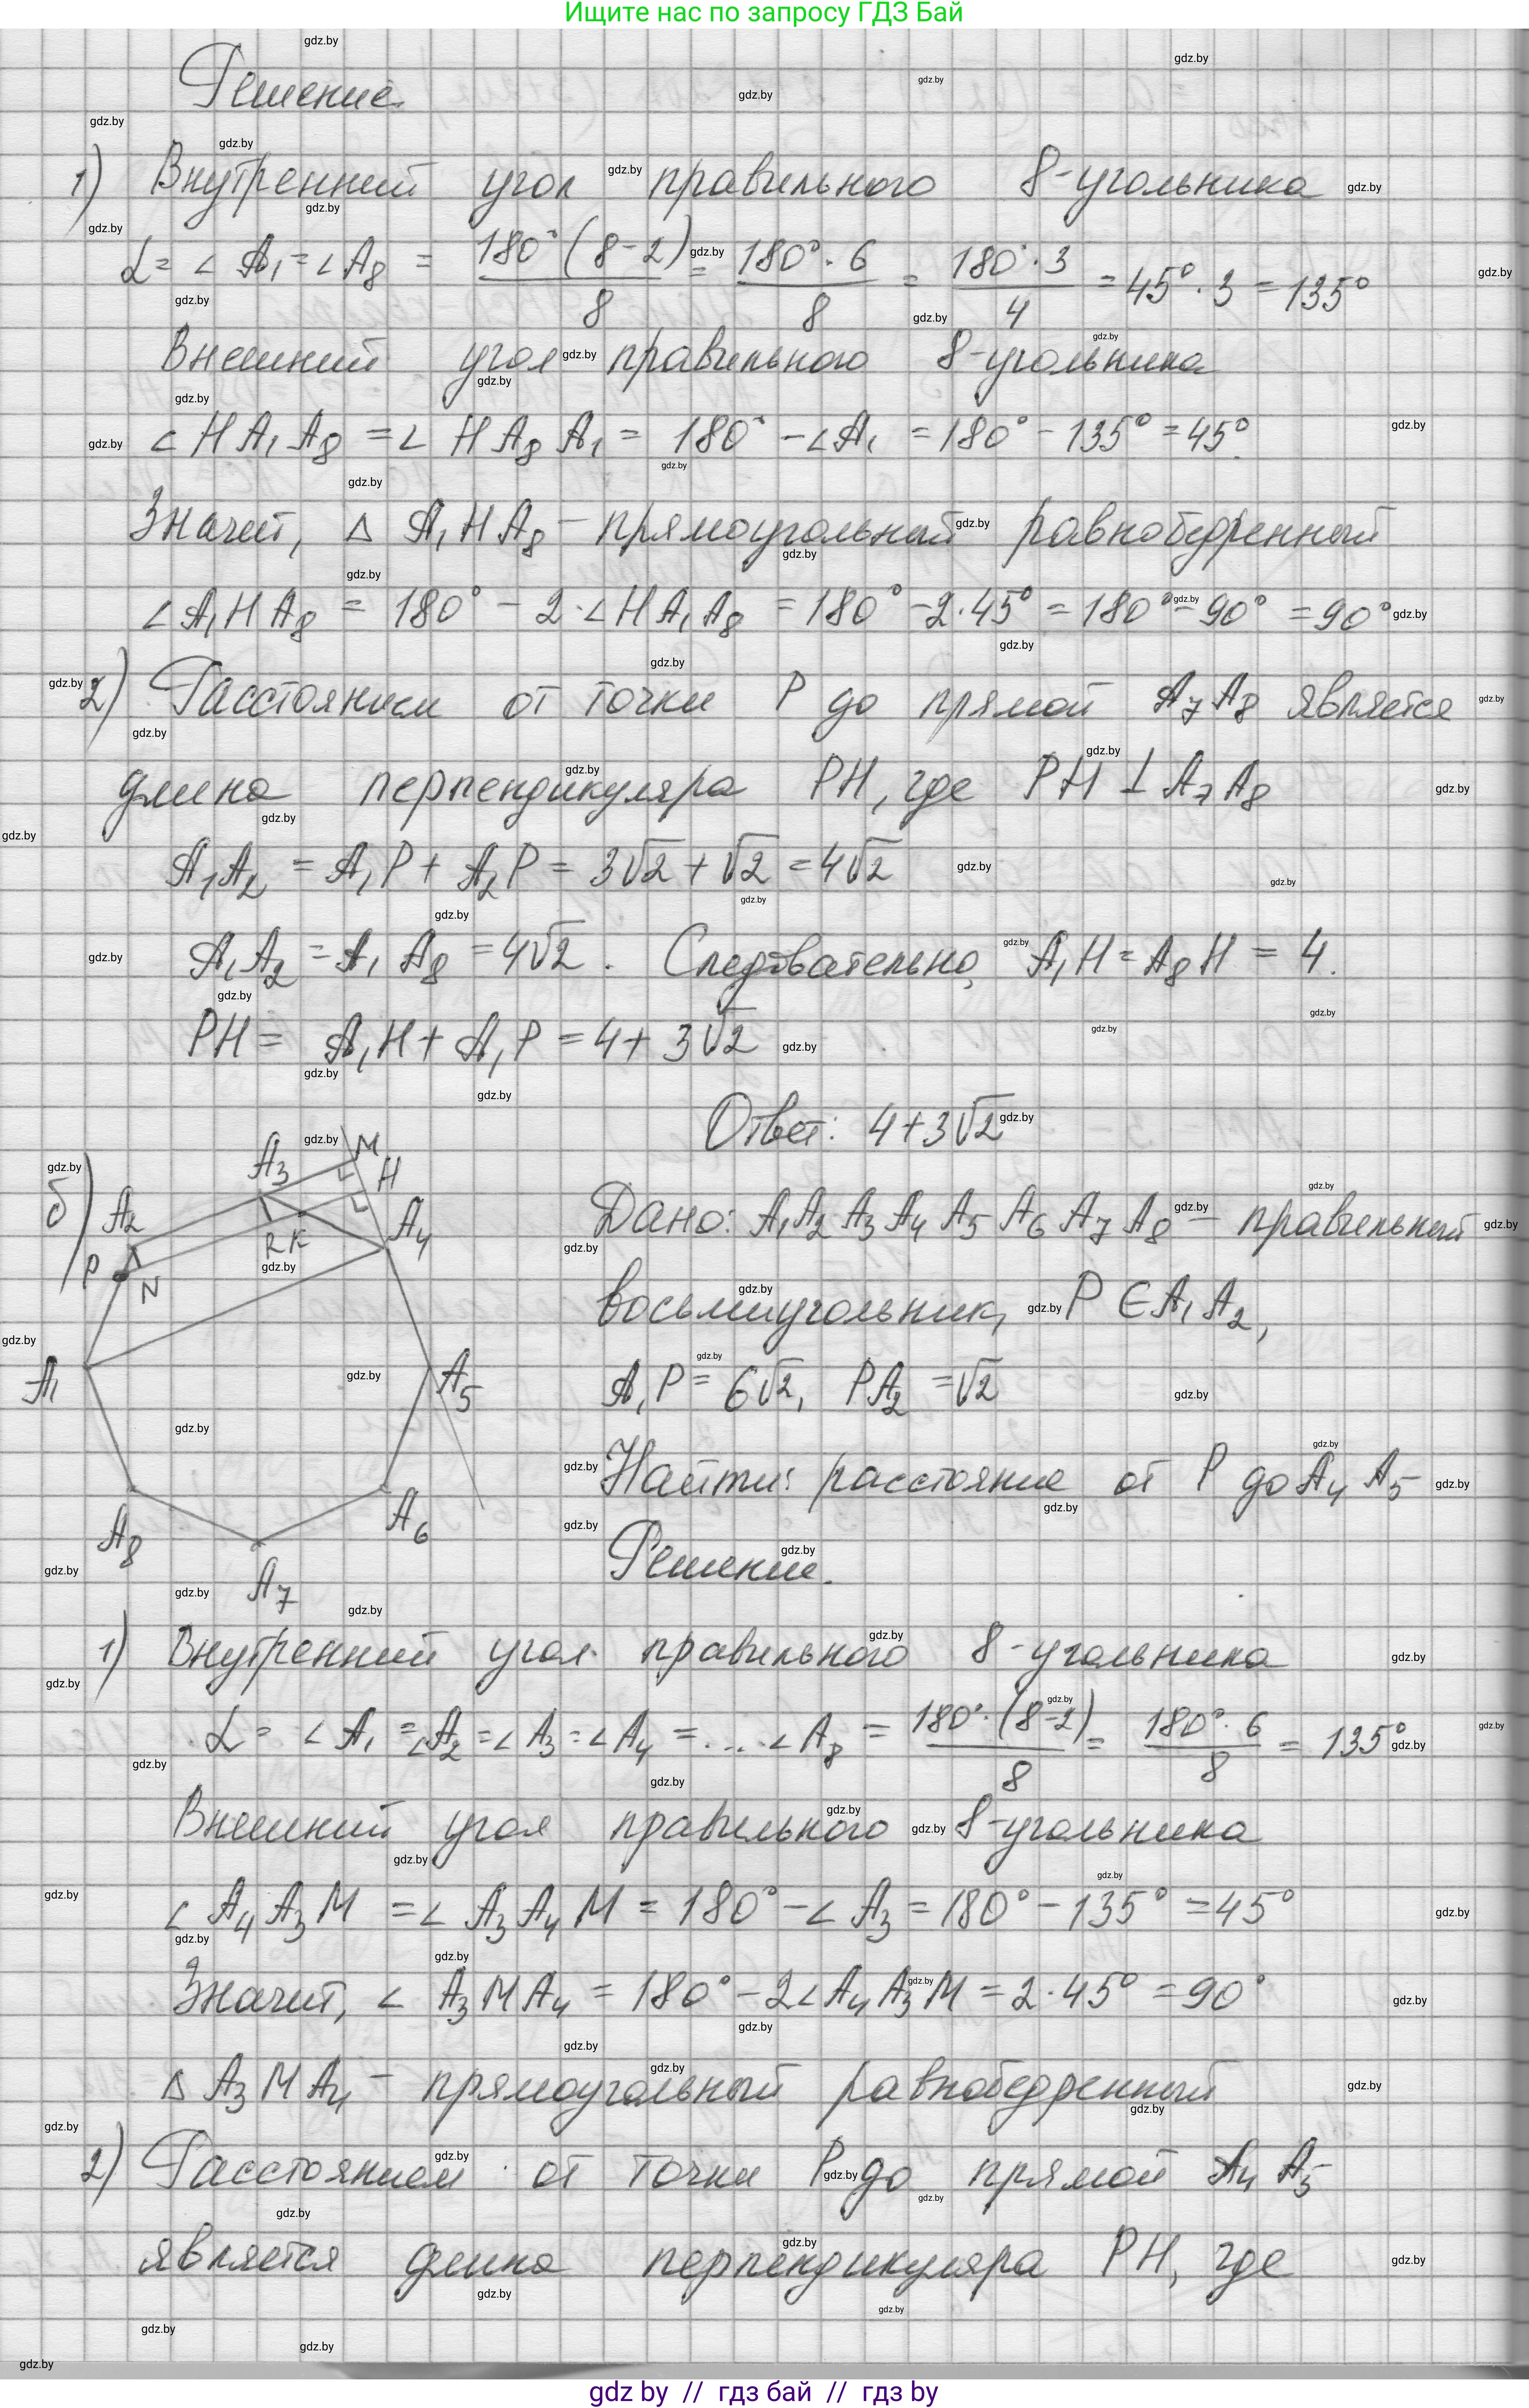 Ищите нас по запросу ГДЗ Бай
Решение.
1) Внутренний угол правильного 8-угольника
α = ∠A₁ = ∠A₈ = 180°(8-2)/8 = 180°·6/8 = 180°·3/4 = 45°·3 = 135°
Внешний угол правильного 8-угольника
∠HA₁A₈ = ∠HA₈A₁ = 180° - ∠A₁ = 180° - 135° = 45°.
Значит, Δ A₁HA₈ - прямоугольный равнобедренный
∠A₁HA₈ = 180° - 2·∠HA₁A₈ = 180° - 2·45° = 180° - 90° = 90°
2) Расстоянием от точки P до прямой A₇A₈ является
длина перпендикуляра PH, где PH ⊥ A₇A₈
A₁A₂ = A₁P + A₂P = 3√2 + √2 = 4√2
A₁A₂ = A₁A₈ = 4√2. Следовательно, A₁H = A₈H = 4.
PH = A₁H + A₁P = 4 + 3√2
Ответ: 4+3√2
б)
A₃ M
H
A₂ A₄
R K
P N
A₁ A₅
A₈ A₆
A₇
Дано: A₁A₂A₃A₄A₅A₆A₇A₈ - правильный
восьмиугольник, P ∈ A₁A₂,
A₁P = 6√2, PA₂ = √2
Найти: расстояние от P до A₄A₅
Решение.
1) Внутренний угол правильного 8-угольника
α = ∠A₁ = ∠A₂ = ∠A₃ = ∠A₄ = ....∠A₈ = 180°·(8-2)/8 = 180°·6/8 = 135°
Внешний угол правильного 8-угольника
∠A₄A₃M = ∠A₃A₄M = 180° - ∠A₃ = 180° - 135° = 45°
Значит, ∠A₃MA₄ = 180° - 2∠A₄A₃M = 2·45° = 90°
Δ A₃MA₄ - прямоугольный равнобедренный
2) Расстоянием от точки P до прямой A₄A₅
является длина перпендикуляра PH, где
gdz.by
gdz by // гдз бай // гдз by